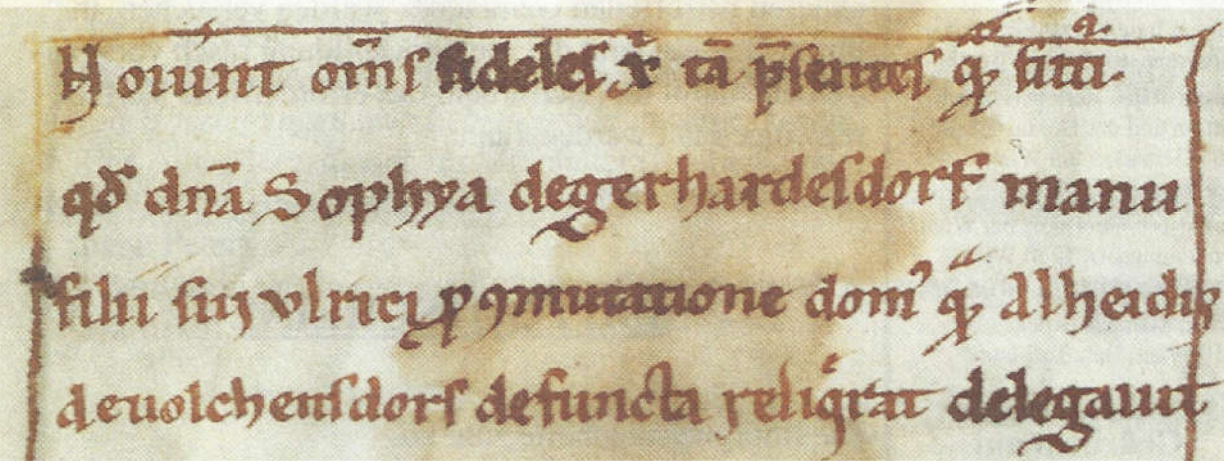 Nouint om̄s fideles xp̄i tā p̄sentes qᷓ futuri
qđ dn̄a Sophya degerhardesdorf manu
filii sui vlrici ꝓ ꝯmutatione domꝰ qᷓ Alheidis
deuolchensdorf defuncta reliq̇rat delegauit